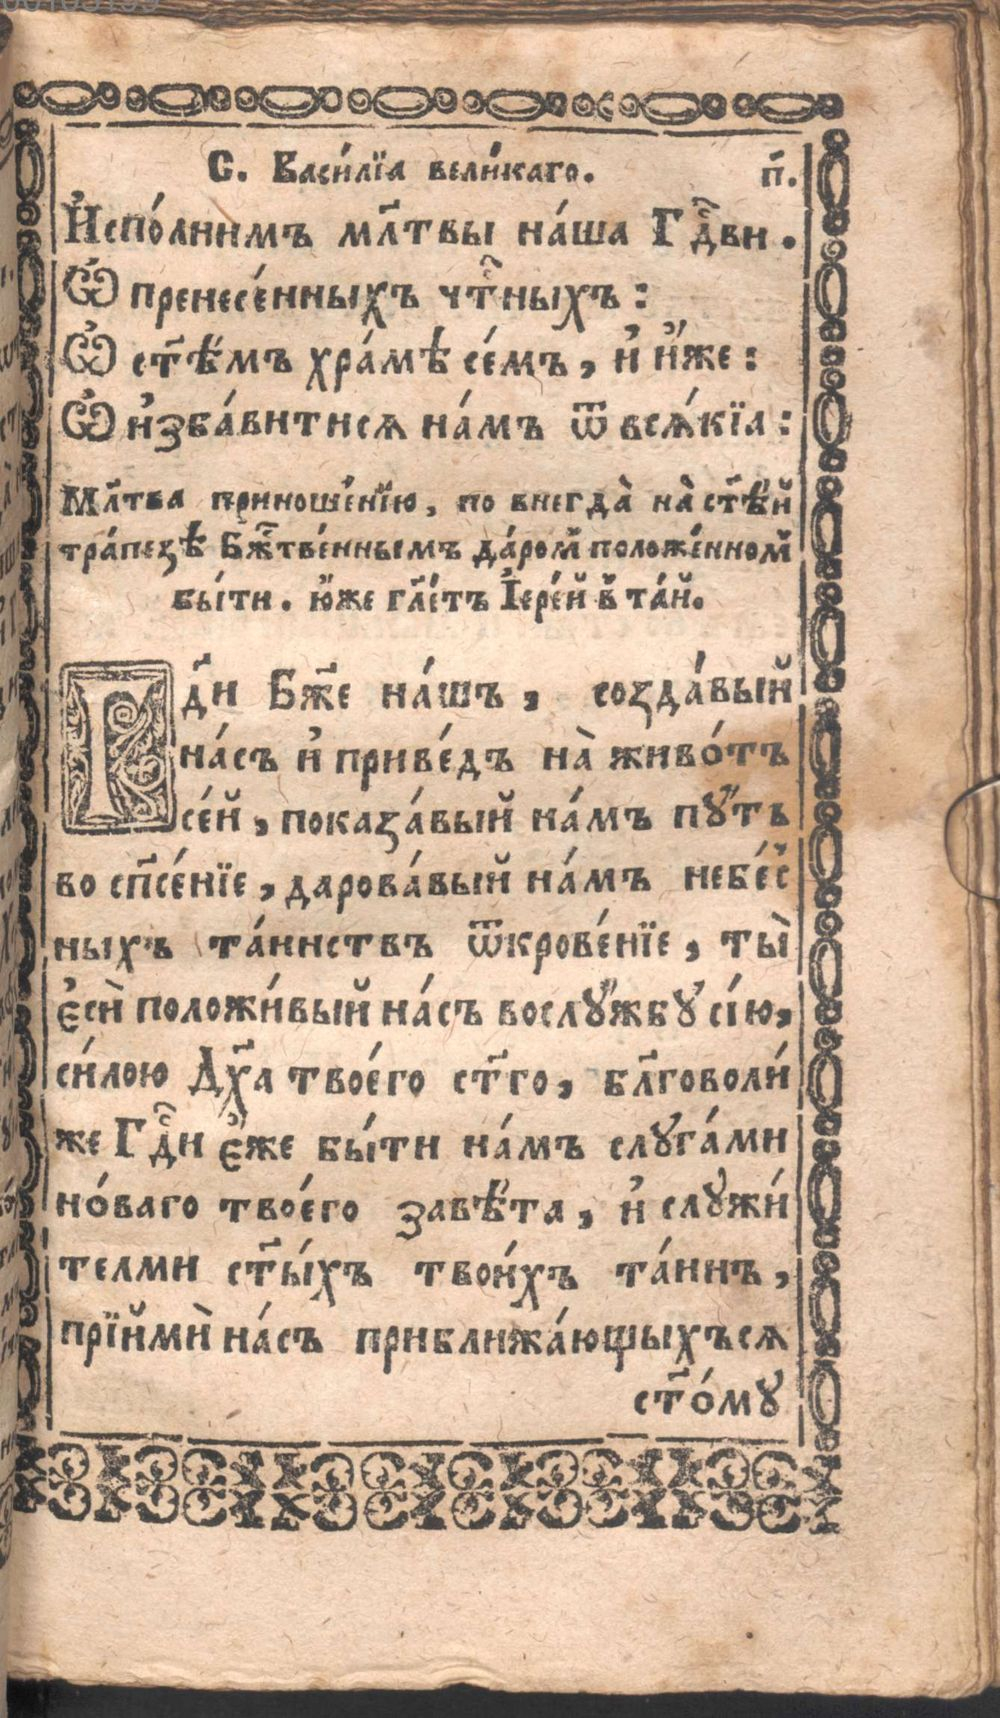 С. Васи́лїа вели́каго. п҃.
И҆спо́лнимъ мл҃твы на́ша Гдⷭ҇ви.
Ѽ пренесе́нныхъ чтⷭ҇ныхъ:
Ѽ ст҃ѣ́мъ хра́мѣ се́мъ, и҆ и҆́же:
Ѽ и҆зба́витися на́мъ ѿ вся́кїа:
Мл҃тва приноше́нїю, по внегда̀ на̀ ст҃ѣ́й
тра́пезѣ Бж҃тве́ннымъ да́ром̾ положе́нном̾
бы́ти. ю҆́же гл҃е́тъ І҆ере́й в̾ та́й.
Гд҃и Бж҃е на́шъ, созда́вый
на́съ и҆ приве́дъ на̀ живо́тъ
се́й, показа́вый на́мъ пꙋ́ть
во сп҃се́нїе, дарова́вый на́мъ небе́с̾
ныхъ та́инствъ ѿкрове́нїе, ты̀
є҆сѝ положи́вый на́съ вослꙋ́жбꙋ сі́ю,
си́лою Дх҃а твоего́ ст҃го, бл҃говоли́
же Гдⷭ҇и є҆́же бы́ти на́мъ слꙋга́ми
но́ваго твоего́ завѣ́та, и҆ слꙋжи́
телми ст҃ы́хъ твои́хъ та́инъ,
прїймѝ на́съ приближа́ющыхъся
ст҃о́мꙋ